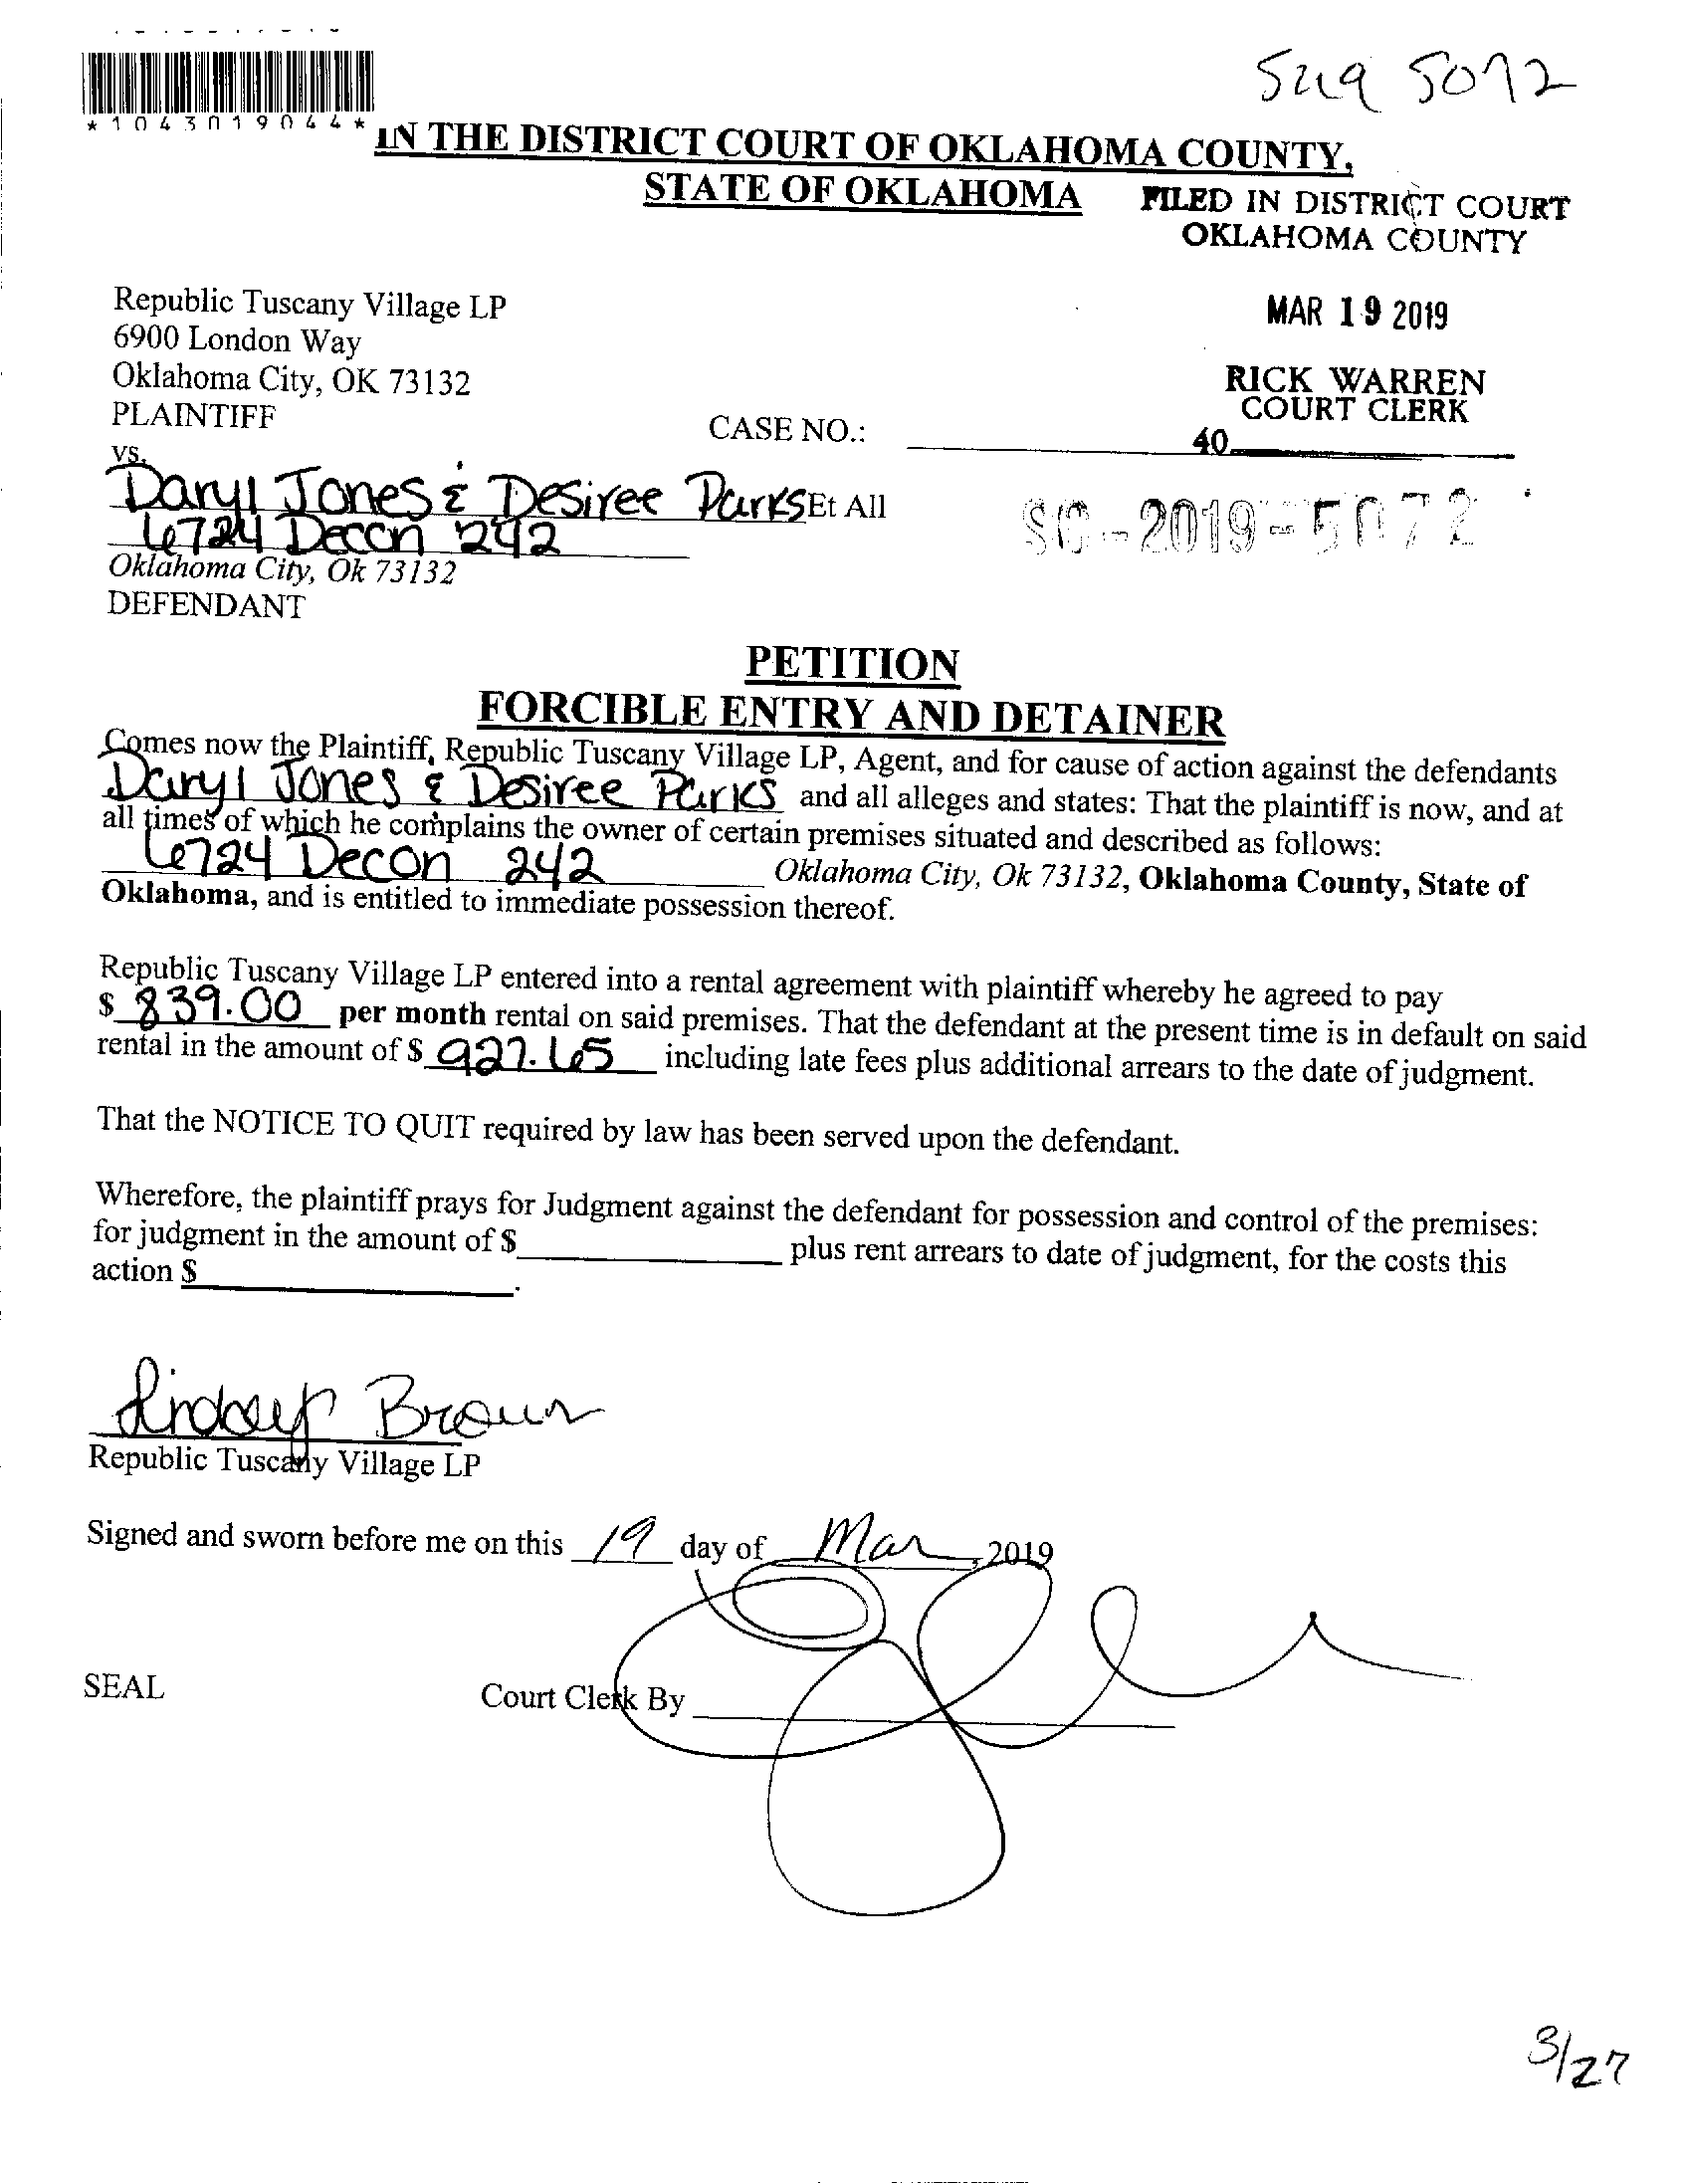 *1043019044*
5219 5072
IN THE DISTRICT COURT OF OKLAHOMA COUNTY,
STATE OF OKLAHOMA
FILED IN DISTRICT COURT
OKLAHOMA COUNTY
MAR 19 2019
RICK WARREN
COURT CLERK
40
Republic Tuscany Village LP
6900 London Way
Oklahoma City, OK 73132
PLAINTIFF
CASE NO.:
vs.
Daryl Jones & Desiree Parks Et All
6724 Decon 242
SC-2019-5072
Oklahoma City, Ok 73132
DEFENDANT
PETITION
FORCIBLE ENTRY AND DETAINER
Comes now the Plaintiff, Republic Tuscany Village LP, Agent, and for cause of action against the defendants
Daryl Jones & Desiree Parks and all alleges and states: That the plaintiff is now, and at
all times of which he complains the owner of certain premises situated and described as follows:
6724 Decon 242 Oklahoma City, Ok 73132, Oklahoma County, State of
Oklahoma, and is entitled to immediate possession thereof.
Republic Tuscany Village LP entered into a rental agreement with plaintiff whereby he agreed to pay
$ 839.00 per month rental on said premises. That the defendant at the present time is in default on said
rental in the amount of $ 927.65 including late fees plus additional arrears to the date of judgment.
That the NOTICE TO QUIT required by law has been served upon the defendant.
Wherefore, the plaintiff prays for Judgment against the defendant for possession and control of the premises:
for judgment in the amount of $ plus rent arrears to date of judgment, for the costs this
action $ .
Lindsey Brown
Republic Tuscany Village LP
Signed and sworn before me on this 19 day of Mar, 2019
SEAL
Court Clerk By
3/27